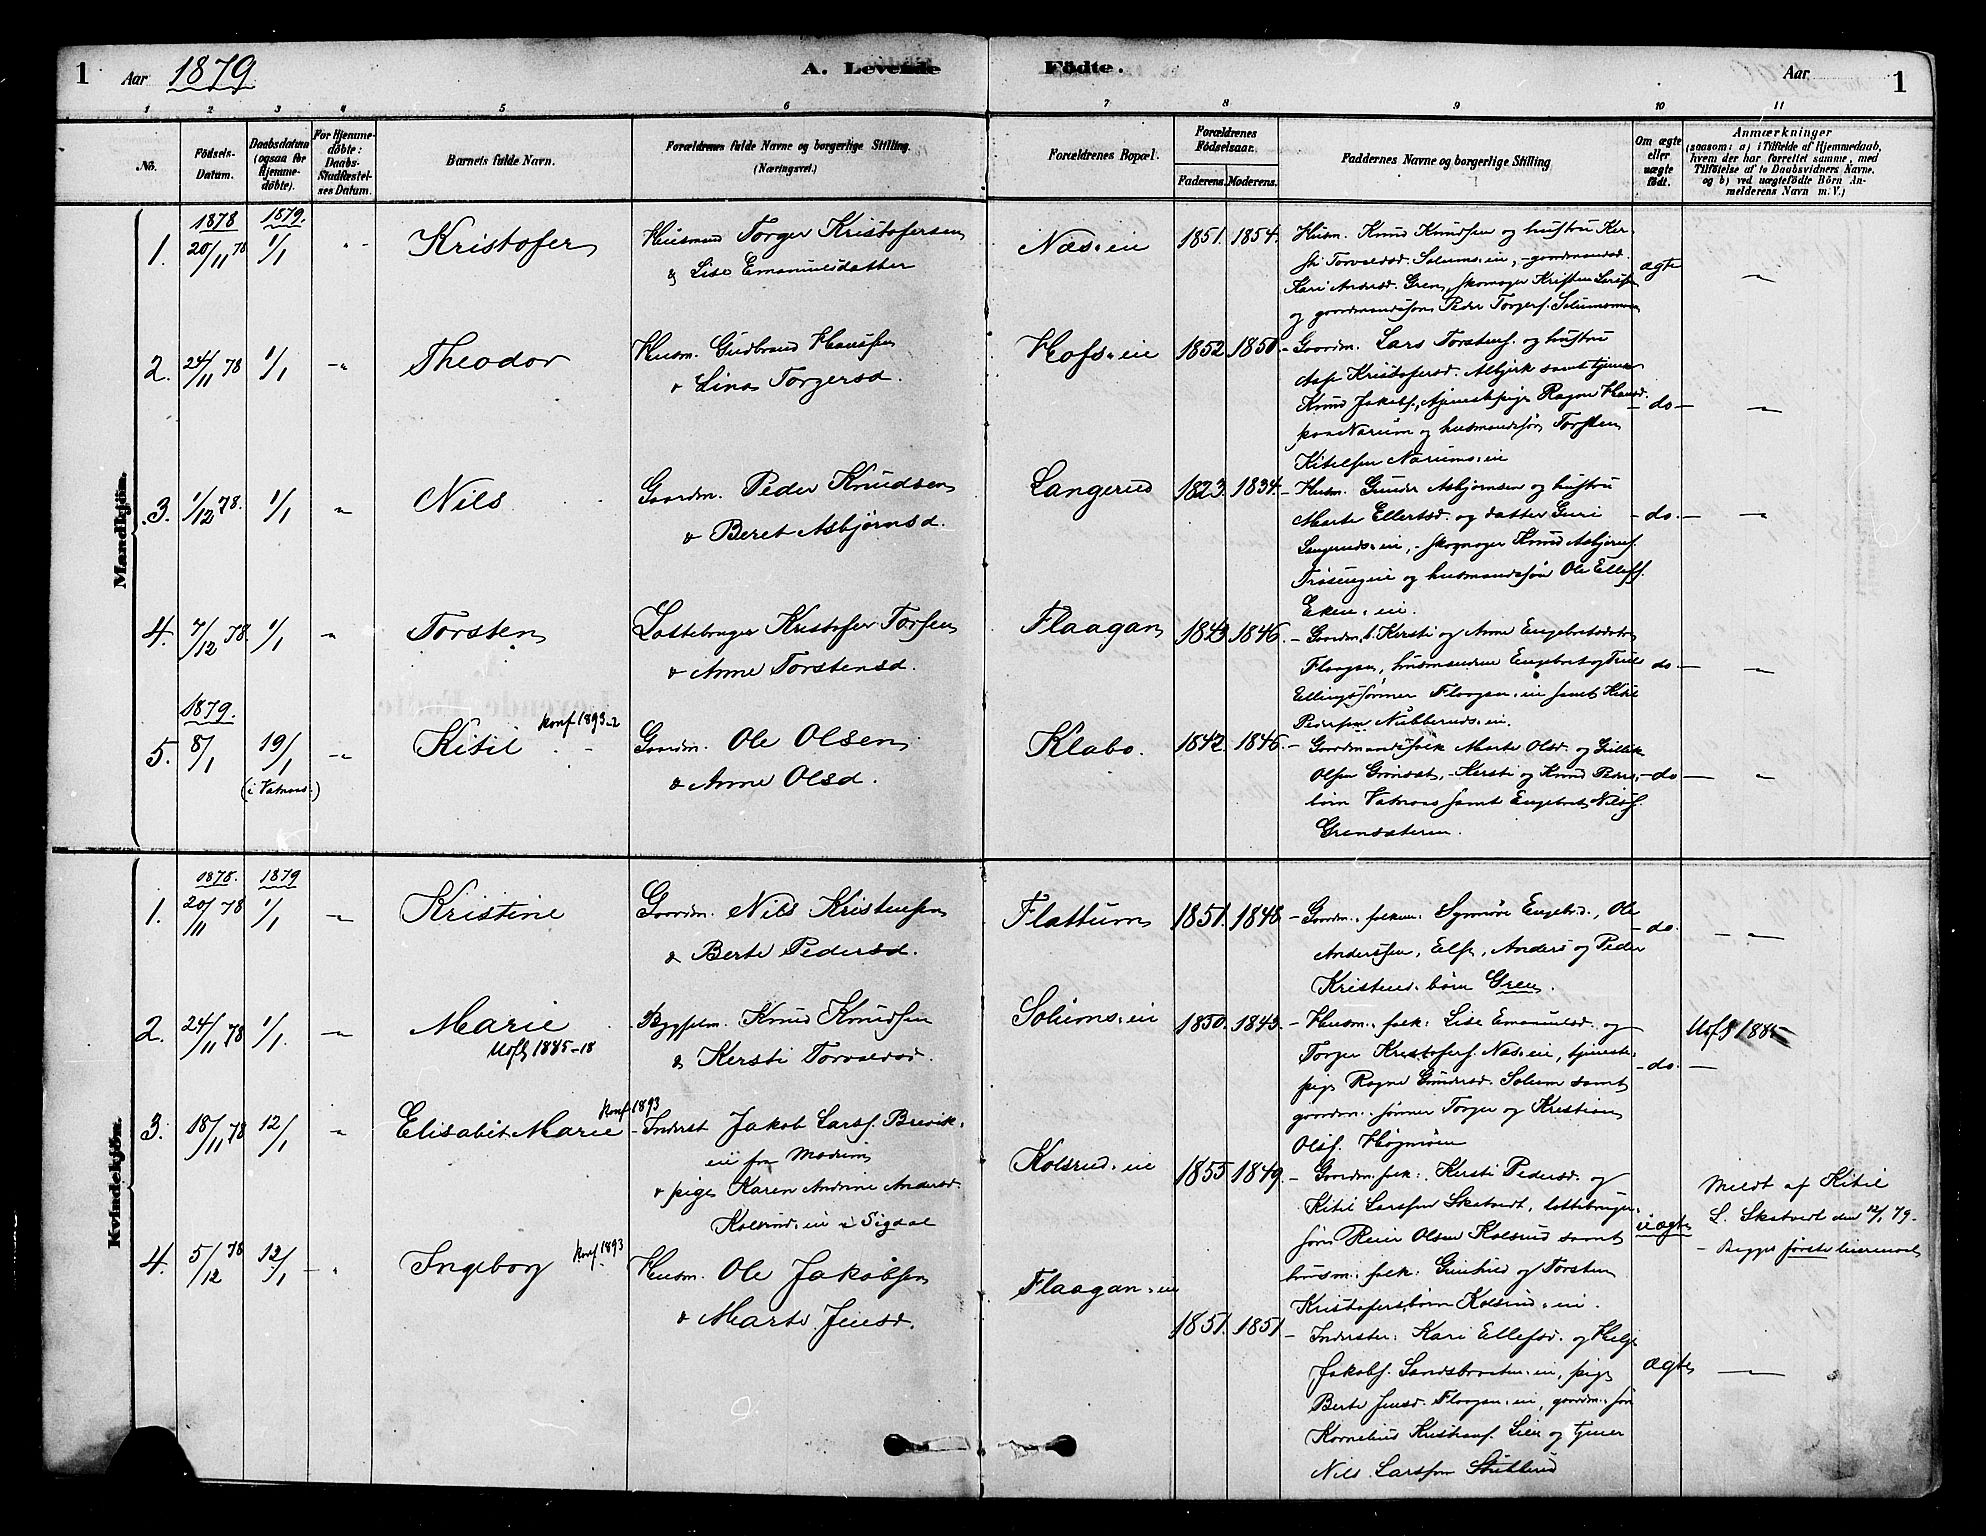 1 Aar 1879. A. Levende Födte. Aar 1
1 2 3 4 5 6 7 8 9 10 11
Nö.
Födsels-Datum.
Daabsdatum (ogsaa for Hjemme-döbte).
For Hjemme-döbte: Daabs-Stadfæstel-ses Datum.
Barnets fulde Navn.
Forældrenes fulde Navne og borgerlige Stilling. (Næringsvei.)
Forældrenes Bopæl.
Forældrenes Födselsaar.
Faderens. Moderens.
Faddernes Navne og borgerlige Stilling
Om ægte eller uægte födt.
Anmærkninger
(saasom: a) i Tilfælde af Hjemmedaab, hvem der har forrettet samme, med Tilföielse af to Daabsvidners Navne, og b) ved uægtefödte Börn An-melderens Navn m. V.)
Mandkjön.
1878 1879.
1. 20/11 78 1/1 Kristofer Husmand Torger Kristofersen
& Lise Emanuelsdatter
Næs.eie 1851. 1854.
Husm. Knud Knudsen og hustru Ker-
sti Torvaldsd. Solums.eie, gaardmandsd.
Kari Andersd. Gren, skomager Kristen Larsen
og gaardmandssøn Peder Torgers. Solumsmoen
ægte
2. 24/11 78 1/1 Theodor Husm. Gudbrand Hanssen
& Lina Torgersd.
Hofs.eie 1852 1850.
Gaardm. Lars Torstens. og hustru
Kristofersd. Albjerk samt tjener
Knud Jakobs., tjenestepige Ragne Hansd.
paa Narum og husmandssøn Torsten
Kitelsen Narums.eie
do
3. 1/12 78. 1/1 Nils Gaardm. Peder Knudsen
& Beret Asbjørnsd.
Langerud 1823. 1834.
Husm. Gunder Asbjørnsen og hustru
Marte Ellertsd. og datter Guri
Langeruds.eie, skomager Knud Asbjørns.
og husmandssøn Ole Ellefs.
Eken.eie.
do.
4. 7/12 78. 1/1 Torsten Lottebruger Kristofer Torsen
& Anne Torstensd.
Flaagan 1843 1846.
Gaardm. Kersti og Anne Engebretsdøtre
Flaagan, husmændene Engebret og Truls
Ellingssønner Flaagan.eie samt Kitil
Pedersen Nubberuds.eie.
do
1879.
5. 8/1 19/1 (i Vatnaas.) Kitil konf 1893-2 Gaardm. Ole Olsen
& Anne Olsd.
Klabo. 1842. 1846.
Gaardmandsfolk Marte Olsd. og Gullik
Olsen Grønsæt, Kersti og Knud Peders-
børn Vatnaas samt Engebret Nilss.
Grønsæteren.
do
Kvindekjön.
1878. 1879
1. 20/11 78 1/1 Kristine Gaardm. Nils Kristensen
& Berte Pedersd.
Flattum 1851. 1848.
Gaardm.folken: Synnøve Engebrd., Ole
Anderssen, Else, Anders og Peder
Kristens.børn Gren.
do.
2. 24/11 78 1/1. Marie Bygselm. Knud Knudsen
Uofl 1885-18 & Kersti Torvaldsd.
Solums.eie 1850. 1843.
Husm.folk: Lise Emanuelsd. og
Torger Kristofers. Næs.eie, tjeneste-
pige Ragne Gundersd. Solum samt
gaardm.sønner Torger og Kristian
Olss. Høgmoen
do. Uofl 1885
3. 18/11 78 12/1 Elisabet Marie konf 1893 Inderst Jakob Larss. Brevik-
eie fra Modum
& pige Karen Andrine Andersd.
Kolsrud.eie i Sigdal
Kolsrud.eie 1855 1849.
Gaardm.folk: Kersti Pedersd. og
Kitil Larssen Skatvedt, lottebruger-
søn Reier Olsen Kolsrud samt
husm.folk: Gunhild og Torsten
Kristofersbørn Kolsrud.eie.
uægte
Meldt af Kitil
L. Skatvedt den 12/1 79.
Begges første leiermaal
4. 5/12 78 12/1 Ingeborg konf 1893 Husm. Ole Jakobsen
& Marte Jensd.
Flaagan.eie 1851. 1851
Inderster: Kari Ellefsd. og Helge
Jakobs. Sandsbraaten.eie, pige
Berte Jensd. Flaagan.eie, gaardm.søn
Kornelius Kristians. Lien og tjener
Nils Larssen Stublerud
ægte